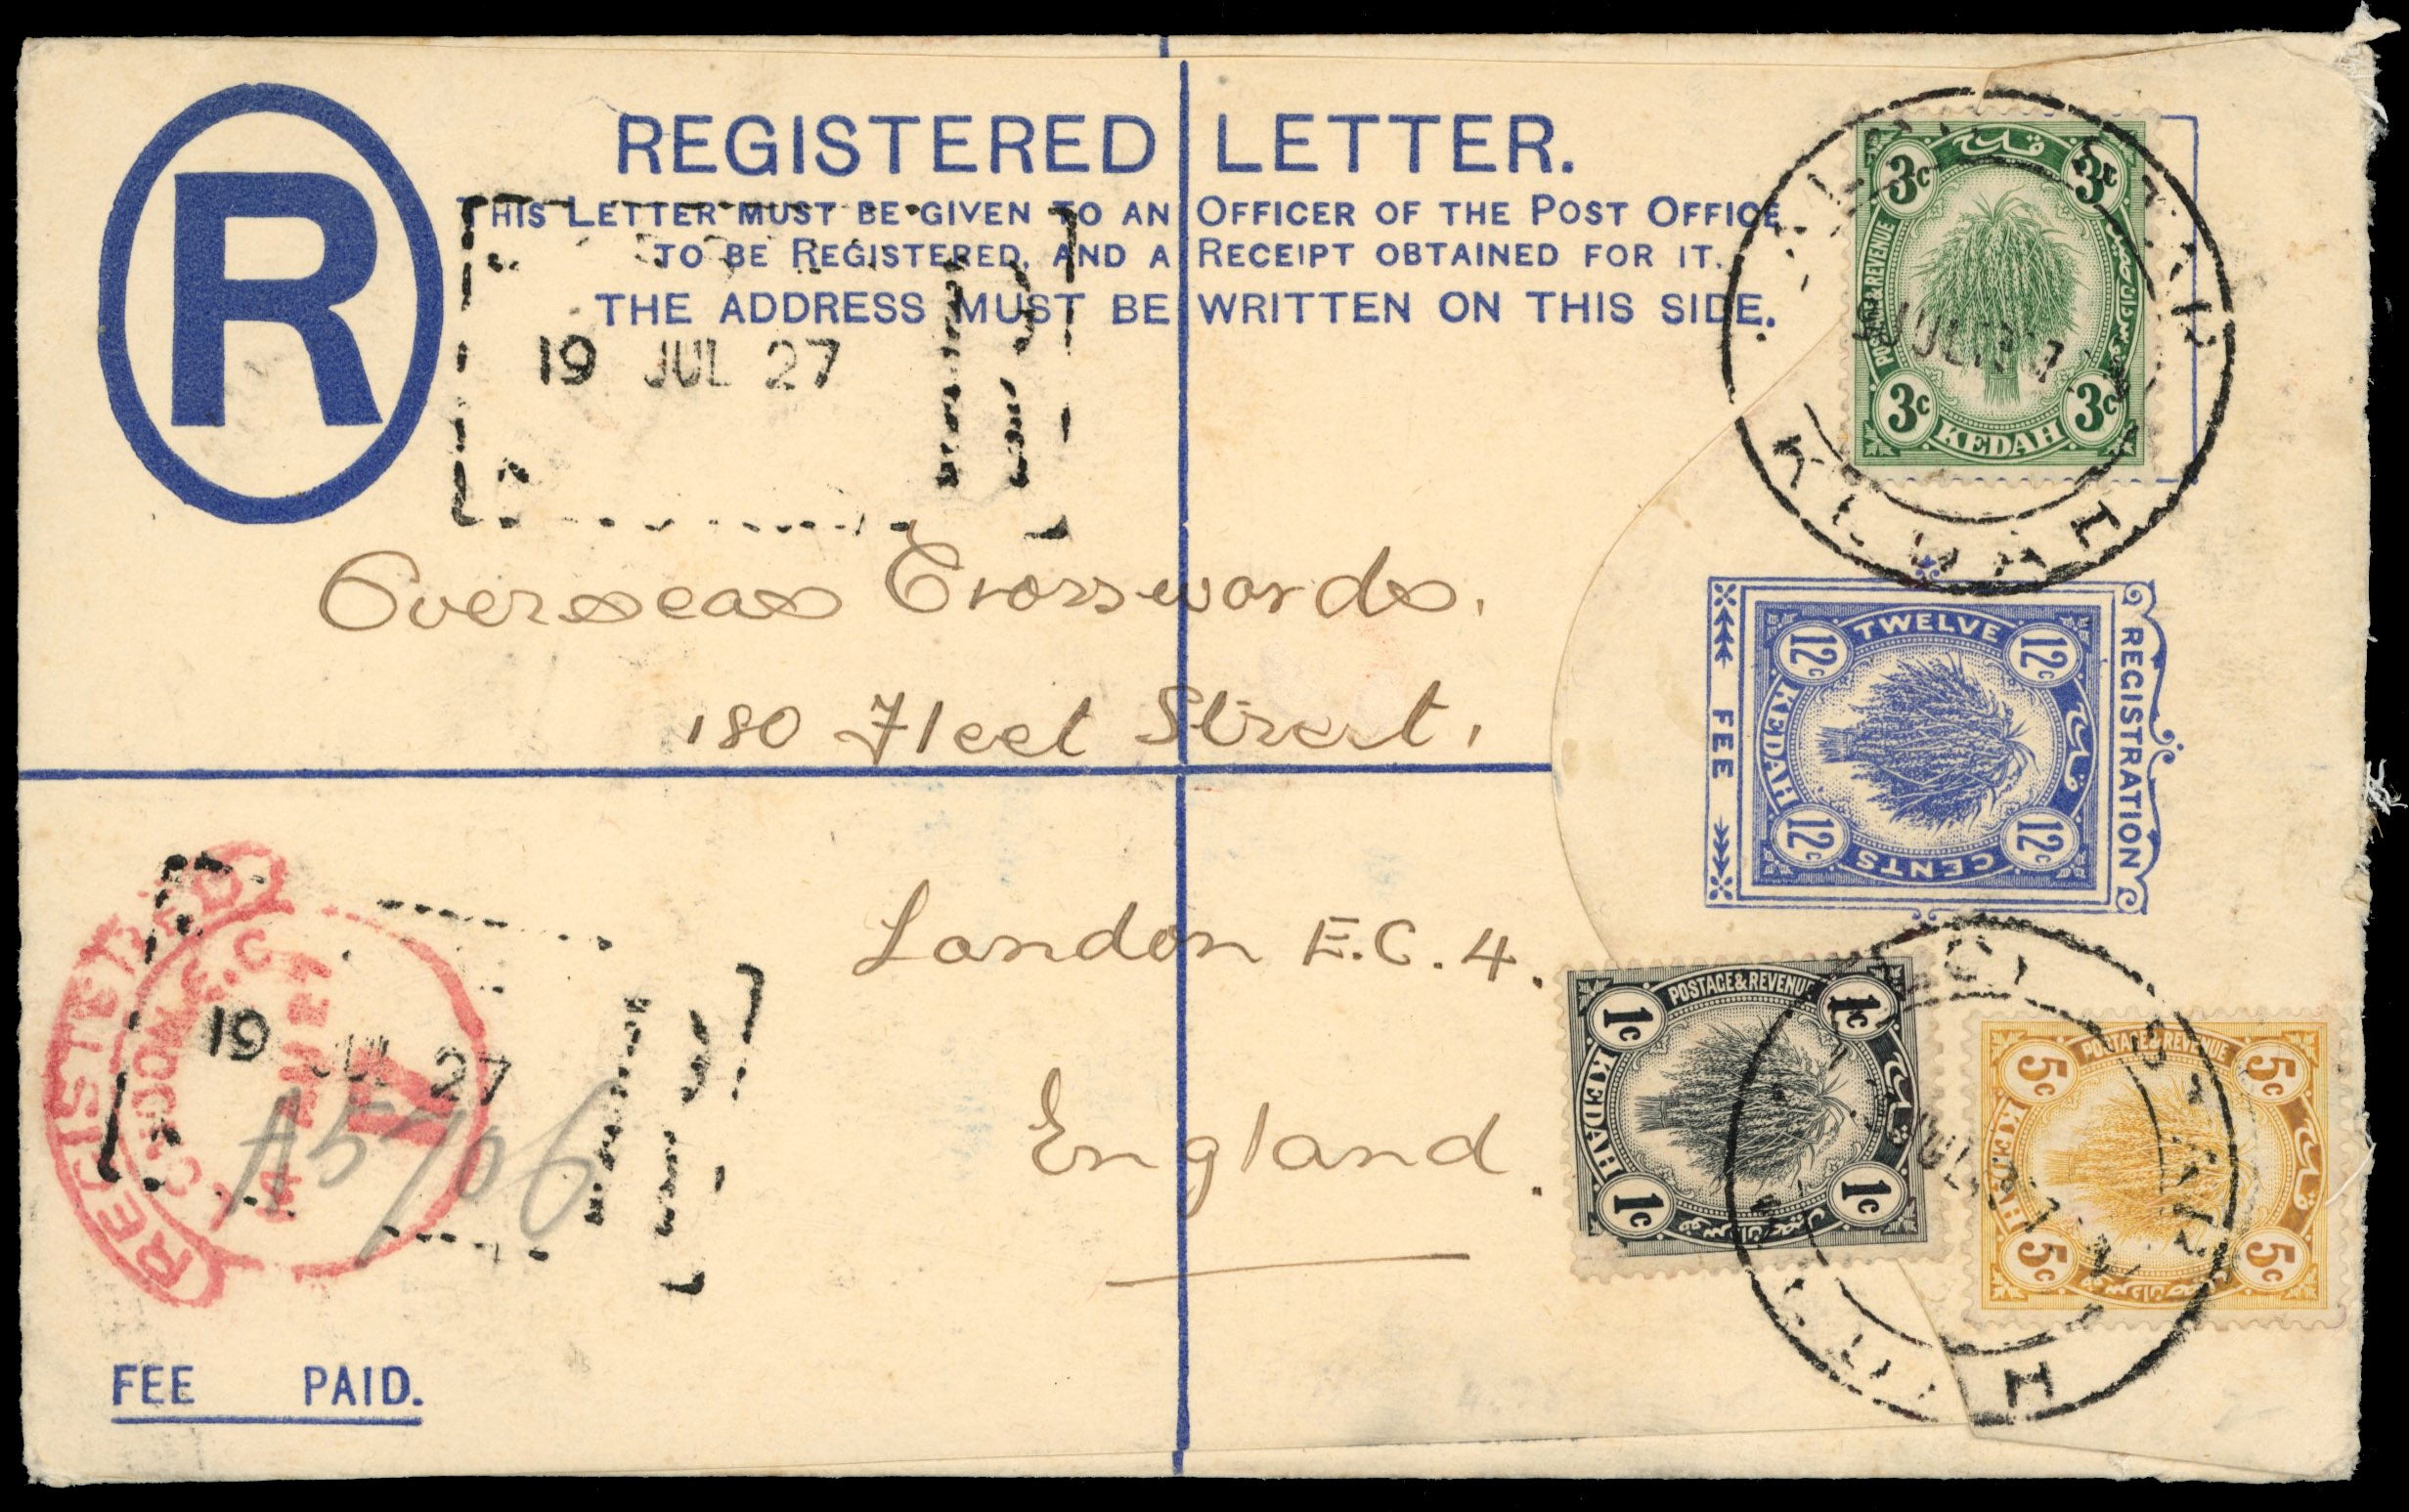 R
REGISTERED LETTER.
THIS LETTER MUST BE GIVEN TO AN OFFICER OF THE POST OFFICE
TO BE REGISTERED, AND A RECEIPT OBTAINED FOR IT.
THE ADDRESS MUST BE WRITTEN ON THIS SIDE.
19 JUL 27
3c 3c
قدح
POSTAGE & REVENUE
3c 3c
KEDAH
STAR
Overseas Crosswords,
180 Fleet Street,
London E.C. 4.
England.
REGISTRATION FEE
TWELVE
12c 12c
KEDAH
قدح
12c 12c
CENTS
POSTAGE & REVENUE
1c 1c
KEDAH
قدح
1c 1c
POSTAGE & REVENUE
5c 5c
KEDAH
قدح
5c 5c
REGISTERED
19 JUL 27
A5706
FEE PAID.